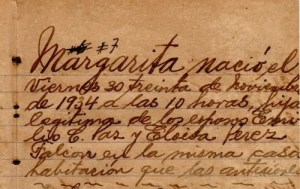 # 7
Margarita nació el
Viernes 30 treinta de Noviembre
de 1934 a las 10 horas, hija
legitima de los esposos Emi
lio C. Paz y Eloisa Perez
Falcon en la misma casa
habitacion que las anteriores